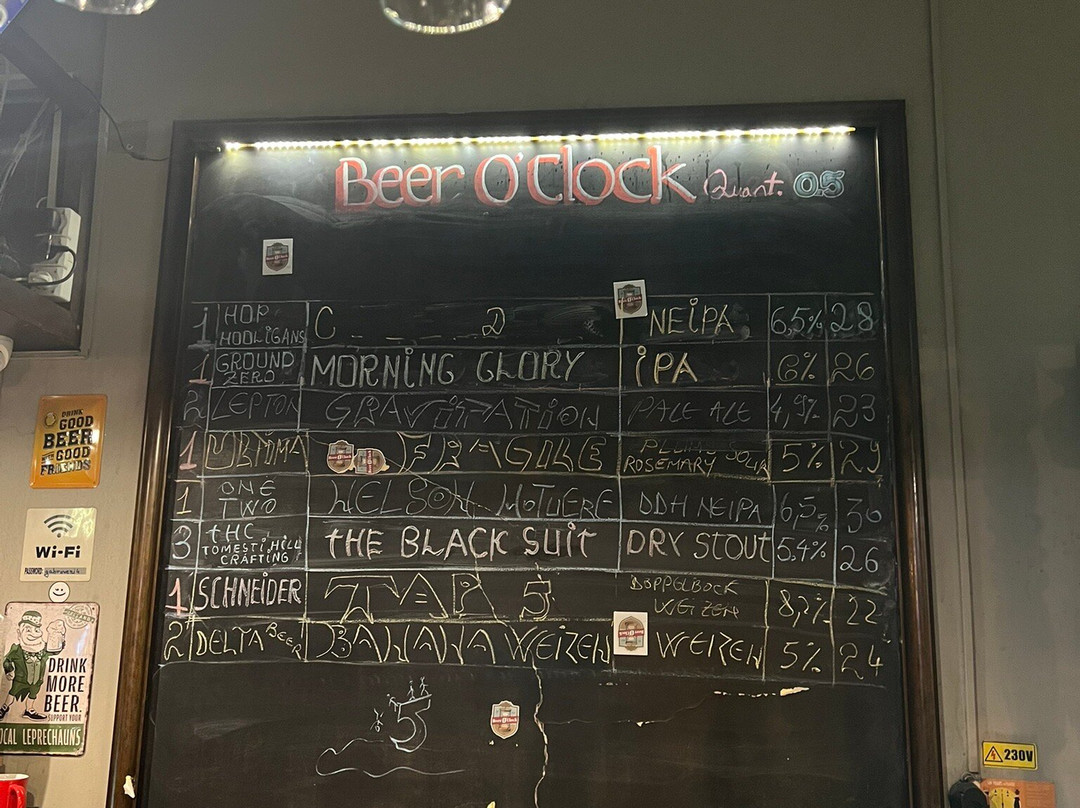 Beer O'Clock Quant. 0.5
1 HOP HOOLIGANS C _ _ _ _ D NEiPA 6,5% 28
1 GROUND ZERO MORNiNG GLORY iPA 6% 26
2 LEPTON GRAViTATiON PALE ALE 4,9% 23
1 FRAGILE ROSEMARY SOUR 5% 29
1 ONE TWO NELSON MOTUERE DDH NEiPA 6,5% 30
3 tHC TOMESTi HiLL CRAFTiNG tHE BLACK SUit DRY STOUT 5.4% 26
1 SCHNEiDER TAP 5 DOPPELBOCK WEiZEN 8,2% 22
2 DELTA BEER BANANA WEiZEN WEiZEN 5% 24
5
DRINK
GOOD
BEER
WITH
GOOD
FRIENDS
Wi-Fi
PASSWORD
DRINK
MORE
BEER.
SUPPORT YOUR
OCAL LEPRECHAUNS
230V